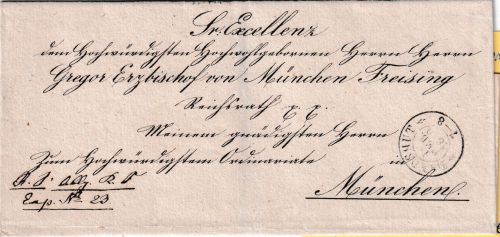 Sr. Excellenz
dem Hochwürdigsten Hochwohlgebornen Herrn Herrn
Gregor Erzbischof von München Freising
Reichsrath p. p.
Meinem gnädigsten Herrn
Zum Hochwürdigstem Ordinariate in
München.
R. S.
Exp. No 23